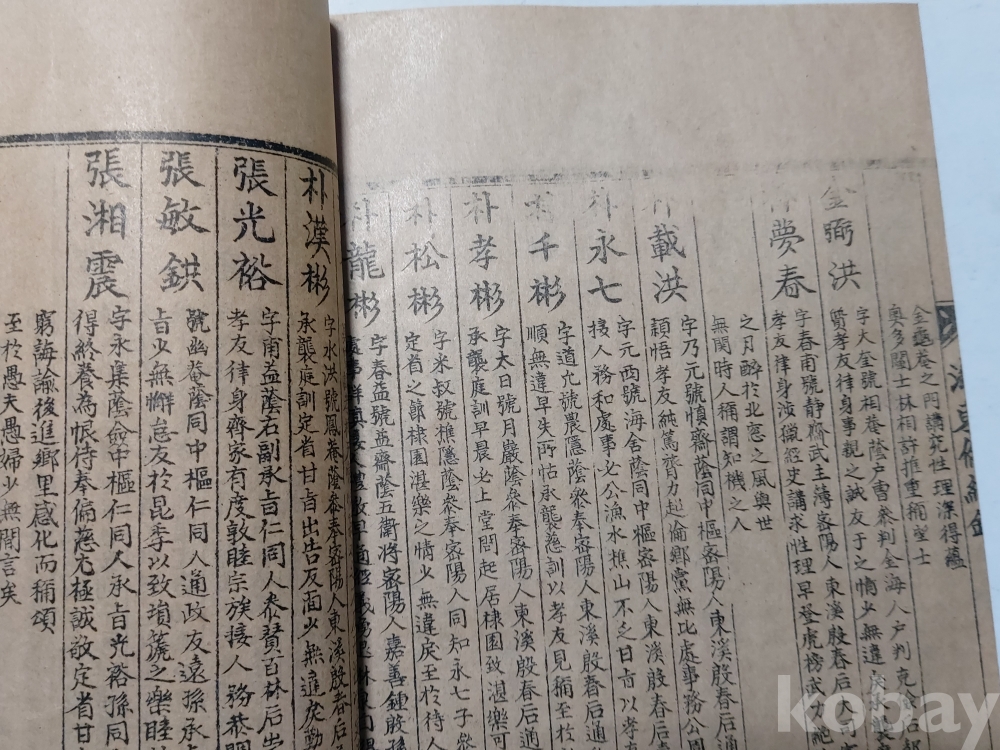 金龜菴之門講究性理深得蘊
奧多闡士林相許推重稱望士
金弼洪
字大奎號相菴蔭戶曹參判金海人戶判克
質孝友律身事親之誠友于之情少無違
夢春
字春甫號静齋武主簿密陽人東溪殷春后
孝友律身涉獵經史講求性理早登虎榜武
之月醉於北窓之風與世
無聞時人稱謂知機之人
朴載洪
字乃元號慎齋蔭同中樞密陽人東溪殷春后通
穎悟孝友純篤齊力起倫鄉黨無比處事務公
朴永七
字元西號海舍蔭同中樞密陽人東溪殷春后
接人務和處事必公漁水樵山不乏甘旨以孝
朴千彬
字道允號農隱蔭參奉密陽人東溪殷春后通
順無違早失所怙承襲慈訓以孝友見稱至於
朴孝彬
字太日號月巖蔭參奉密陽人東溪殷春后通
承襲庭訓早晨必上堂問起居棣園致湛樂可
朴松彬
字米叔號樵隱蔭參奉密陽人同知永七子
定省之節棣園湛樂之情少無違戾至於待人
朴龍彬
字春益號益齋蔭五衛將密陽人嘉善鍾殷孫
朴漢彬
字水洪號鳳菴蔭參奉密陽人東溪殷春后
承襲庭訓定省甘旨出告反面少無違
張光裕
字甫益蔭右副承旨仁同人參贊百林后
孝友律身齊家有度敦睦宗族接人務恭
張敏鉷
號幽菴蔭同中樞仁同人通政友遠孫承
旨少無懈怠友於昆季以致塤篪之樂睦
張湘震
字永集蔭僉中樞仁同人承旨光裕孫同
得終養為恨侍奉偏慈尤極誠敬定省甘
窮誨諭後進鄉里感化而稱頌
至於愚夫愚婦少無間言矣
kobay